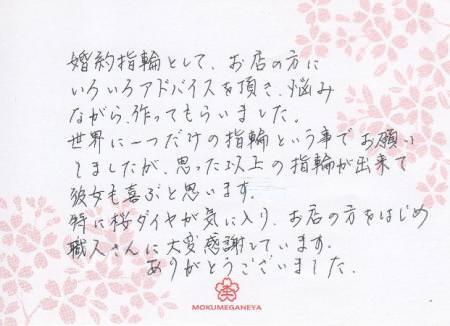 婚約指輪として、お店の方に
いろいろアドバイスを頂き、悩み
ながら、作ってもらいました。
世界に一つだけの指輪という事でお願い
しましたが、思った以上の指輪が出来て
彼女も喜ぶと思います。
特に桜ダイヤが気に入り、お店の方をはじめ
職人さんに大変感謝しています。
ありがとうございました。
MOKUMEGANEYA